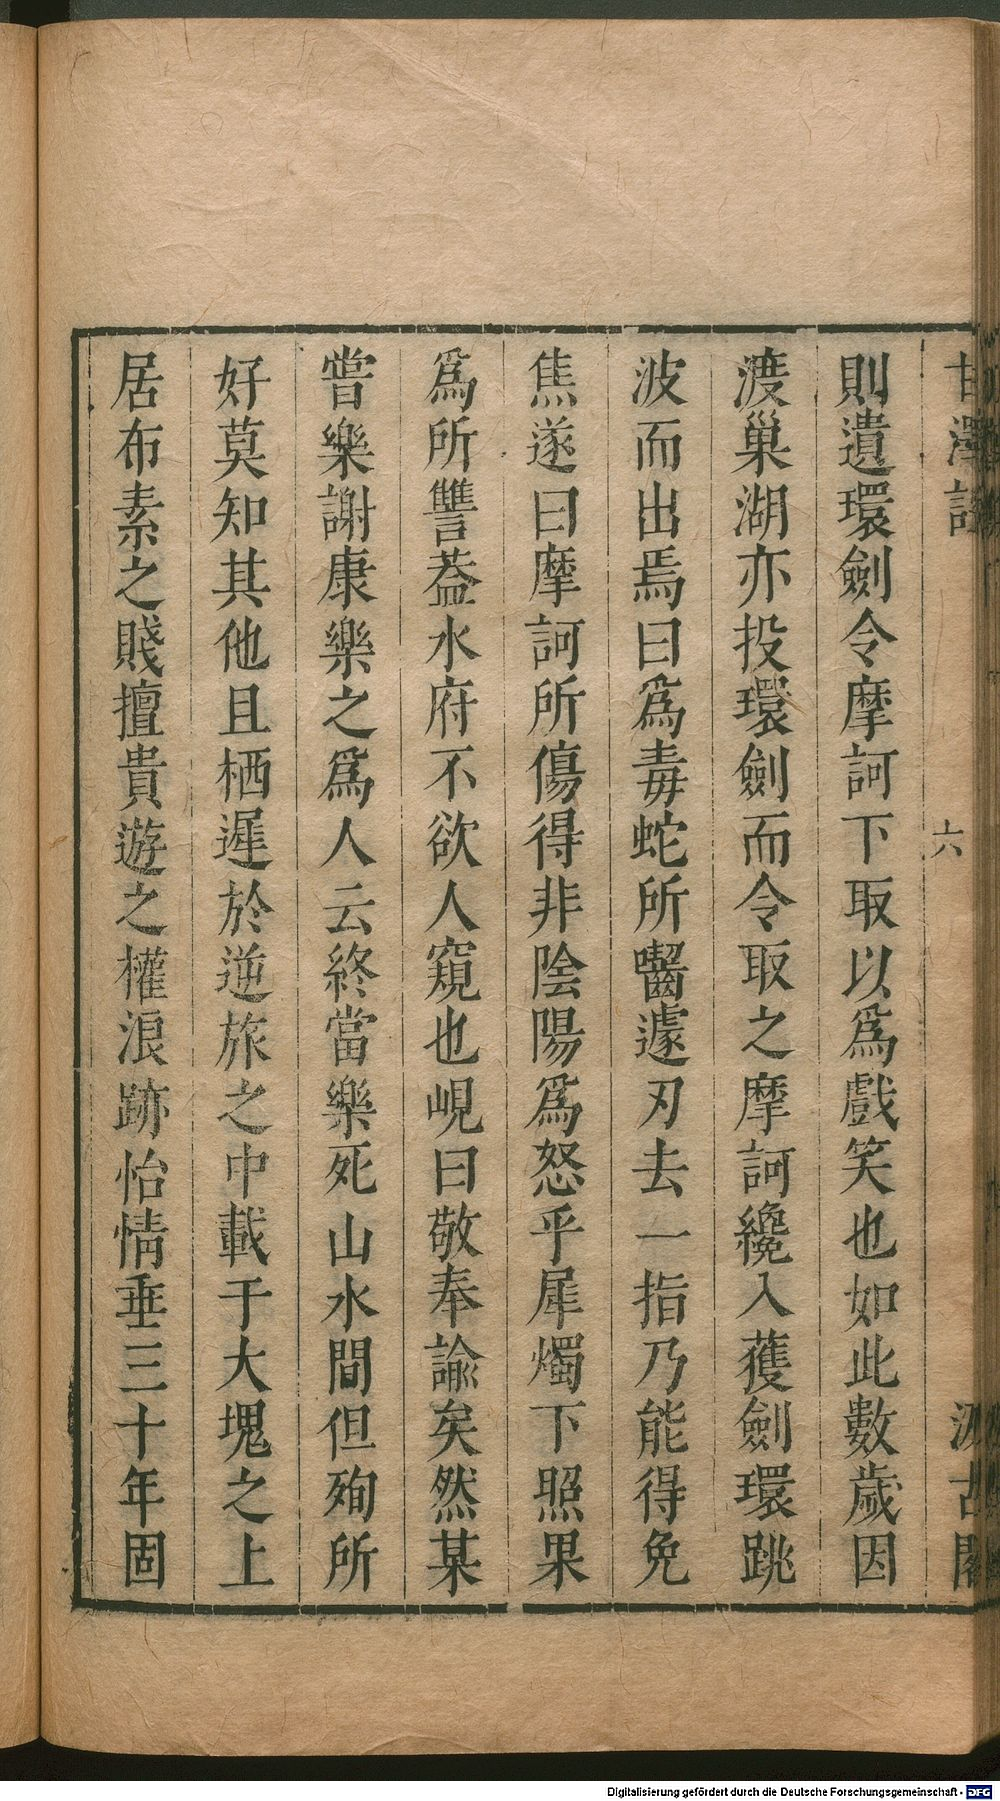 甘澤謠
六
汲古閣
則遺環劍令摩訶下取以爲戲笑也如此數歲因
渡巢湖亦投環劍而令取之摩訶纔入獲劍環跳
波而出焉曰爲毒蛇所嚙遽刃去一指乃能得免
焦遂曰摩訶所傷得非陰陽爲怒乎犀燭下照果
爲所讐葢水府不欲人窺也峴曰敬奉諭矣然某
嘗樂謝康樂之爲人云終當樂死山水間但殉所
好莫知其他且栖遲於逆旅之中載于大塊之上
居布素之賤擅貴遊之權浪跡怡情垂三十年固
Digitalisierung gefördert durch die Deutsche Forschungsgemeinschaft - DFG